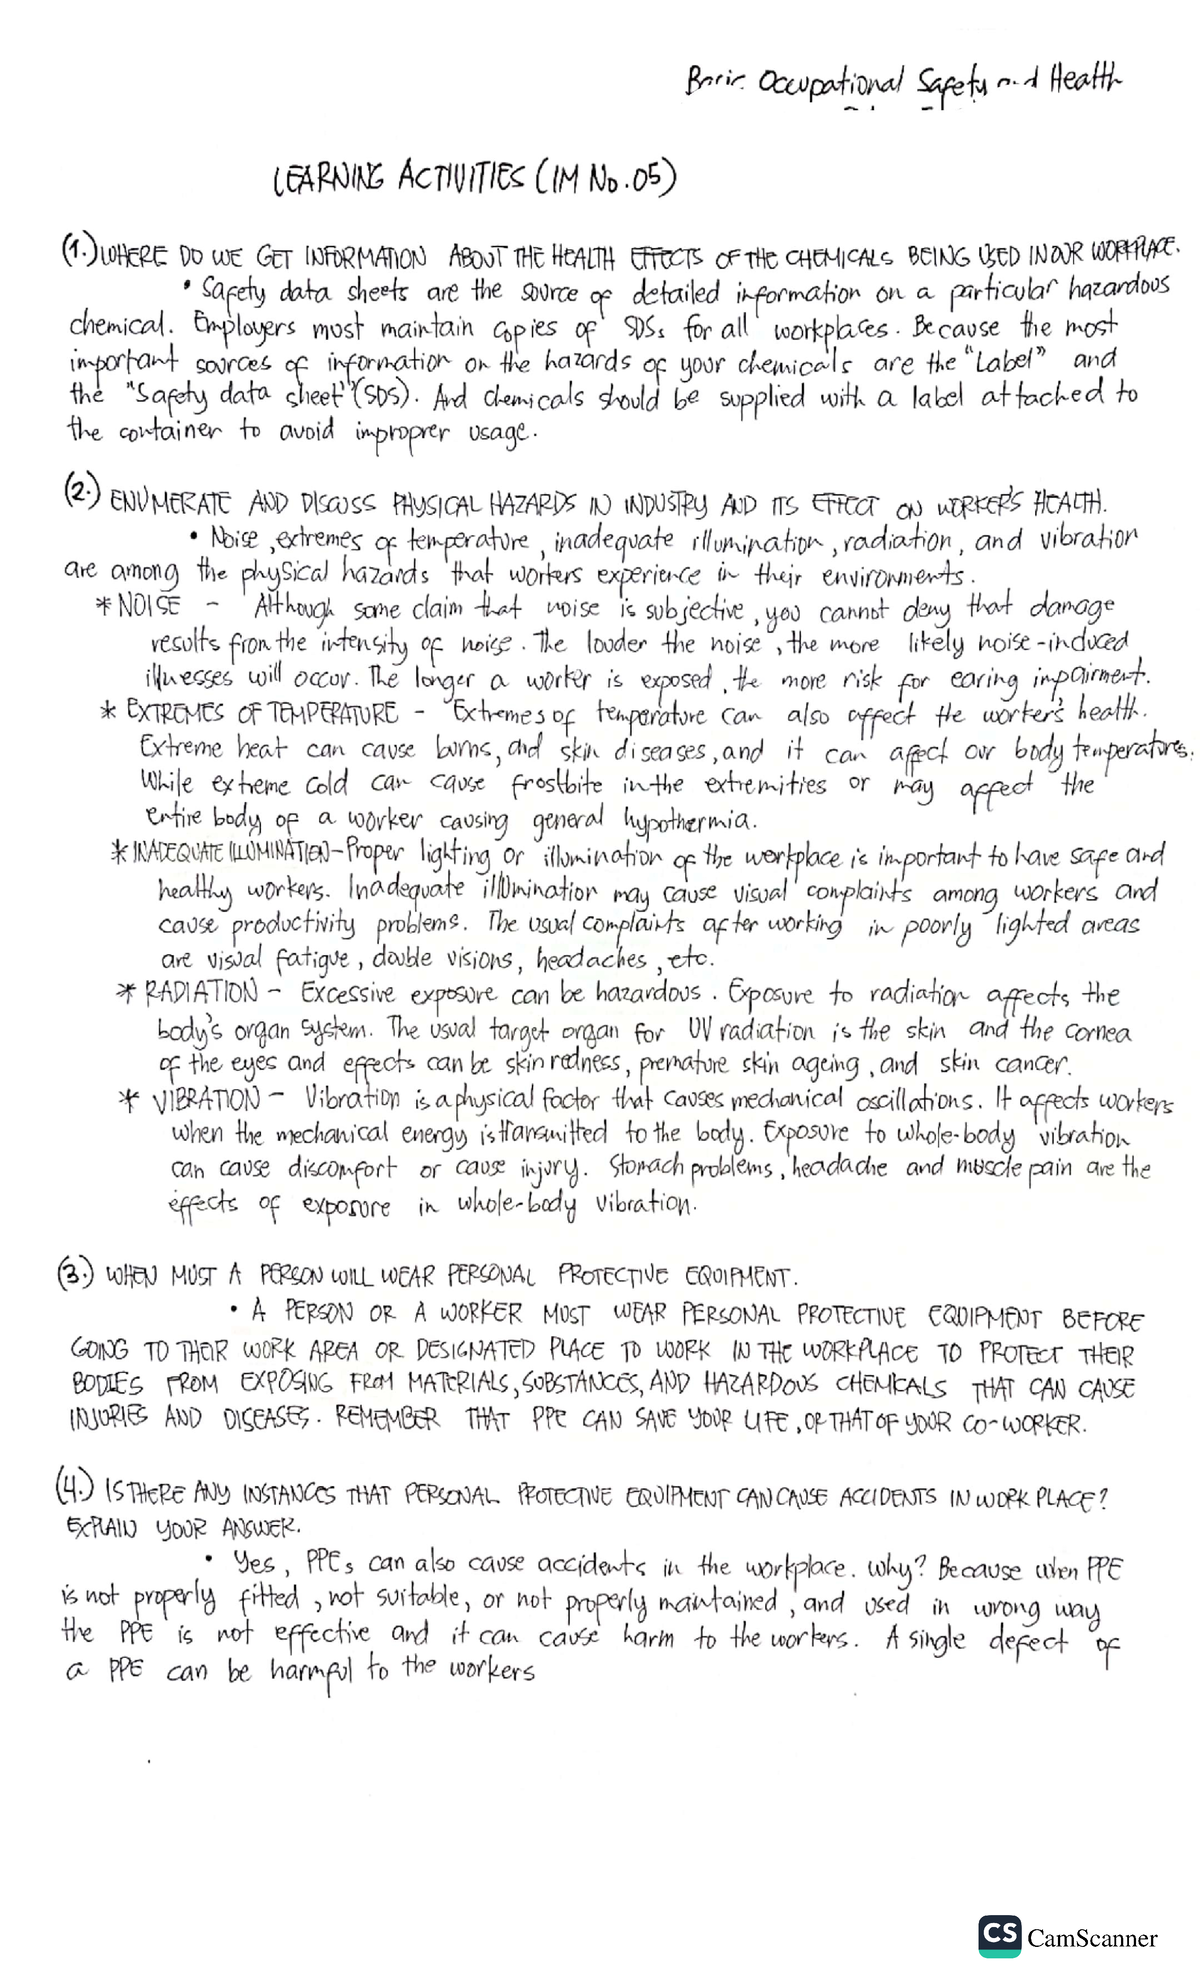 Basic Occupational Safety and Health
LEARNING ACTIVITIES (IM No. 05)
(1.) WHERE DO WE GET INFORMATION ABOUT THE HEALTH EFFECTS OF THE CHEMICALS BEING USED IN OUR WORKPLACE.
• Safety data sheets are the source of detailed information on a particular hazardous
chemical. Employers must maintain copies of SDSs for all workplaces. Because the most
important sources of information on the hazards of your chemicals are the "Label" and
the "Safety data sheet" (SDS). And chemicals should be supplied with a label attached to
the container to avoid improprer usage.
(2.) ENUMERATE AND DISCUSS PHYSICAL HAZARDS IN INDUSTRY AND ITS EFFECT ON WORKER'S HEALTH.
• Noise, extremes of temperature, inadequate illumination, radiation, and vibration
are among the physical hazards that workers experience in their environments.
* NOISE - Although some claim that noise is subjective, you cannot deny that damage
results from the intensity of noise. The louder the noise, the more likely noise-induced
illnesses will occur. The longer a worker is exposed, the more risk for earing impairment.
* EXTREMES OF TEMPERATURE - Extremes of temperature can also affect the worker's health.
Extreme heat can cause burns, and skin diseases, and it can affect our body temperatures.
While extreme cold can cause frostbite in the extremities or may affect the
entire body of a worker causing general hypothermia.
* INADEQUATE ILLUMINATION - Proper lighting or illumination of the workplace is important to have safe and
healthy workers. Inadequate illumination may cause visual complaints among workers and
cause productivity problems. The usual complaints after working in poorly lighted areas
are visual fatigue, double visions, headaches, etc.
* RADIATION - Excessive exposure can be hazardous. Exposure to radiation affects the
body's organ system. The usual target organ for UV radiation is the skin and the cornea
of the eyes and effects can be skin redness, premature skin ageing, and skin cancer.
* VIBRATION - Vibration is a physical factor that causes mechanical oscillations. It affects workers
when the mechanical energy is transmitted to the body. Exposure to whole-body vibration
can cause discomfort or cause injury. Stomach problems, headache and muscle pain are the
effects of exposure in whole-body vibration.
(3.) WHEN MUST A PERSON WILL WEAR PERSONAL PROTECTIVE EQUIPMENT.
• A PERSON OR A WORKER MUST WEAR PERSONAL PROTECTIVE EQUIPMENT BEFORE
GOING TO THEIR WORK AREA OR DESIGNATED PLACE TO WORK IN THE WORKPLACE TO PROTECT THEIR
BODIES FROM EXPOSING FROM MATERIALS, SUBSTANCES, AND HAZARDOUS CHEMICALS THAT CAN CAUSE
INJURIES AND DISEASES. REMEMBER THAT PPE CAN SAVE YOUR LIFE, OR THAT OF YOUR CO-WORKER.
(4.) IS THERE ANY INSTANCES THAT PERSONAL PROTECTIVE EQUIPMENT CAN CAUSE ACCIDENTS IN WORK PLACE?
EXPLAIN YOUR ANSWER.
• Yes, PPEs can also cause accidents in the workplace. Why? Because when PPE
is not properly fitted, not suitable, or not properly maintained, and used in wrong way
the PPE is not effective and it can cause harm to the workers. A single defect of
a PPE can be harmful to the workers
CS CamScanner